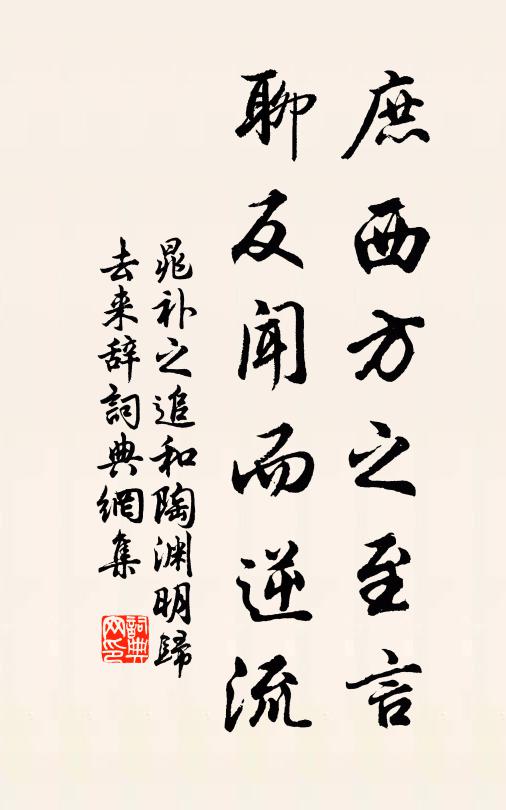 庶西方之至言
聊反闻而逆流
晁补之追和陶渊明归
去来辞詞典網集
詞典网印